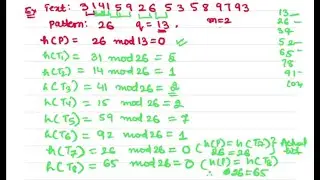 Ex Text: 3141592653589793
Pattern: 26 q=13. m=2
h(P) = 26 mod 13 = 0
h(T1) = 31 mod 26 = 5
h(T2) = 14 mod 26 = 1
h(T3) = 41 mod 26 = 2
h(T4) = 15 mod 26 = 2
h(T5) = 59 mod 26 = 7
h(T6) = 92 mod 26 = 1
h(T7) = 26 mod 26 = 0 (h(P)= h(T7)} Actual
26 = 26
h(T8) = 65 mod 26 = 0 (h(P) = h(T8)
26≠65
13
26
39
52
65
78
91
104